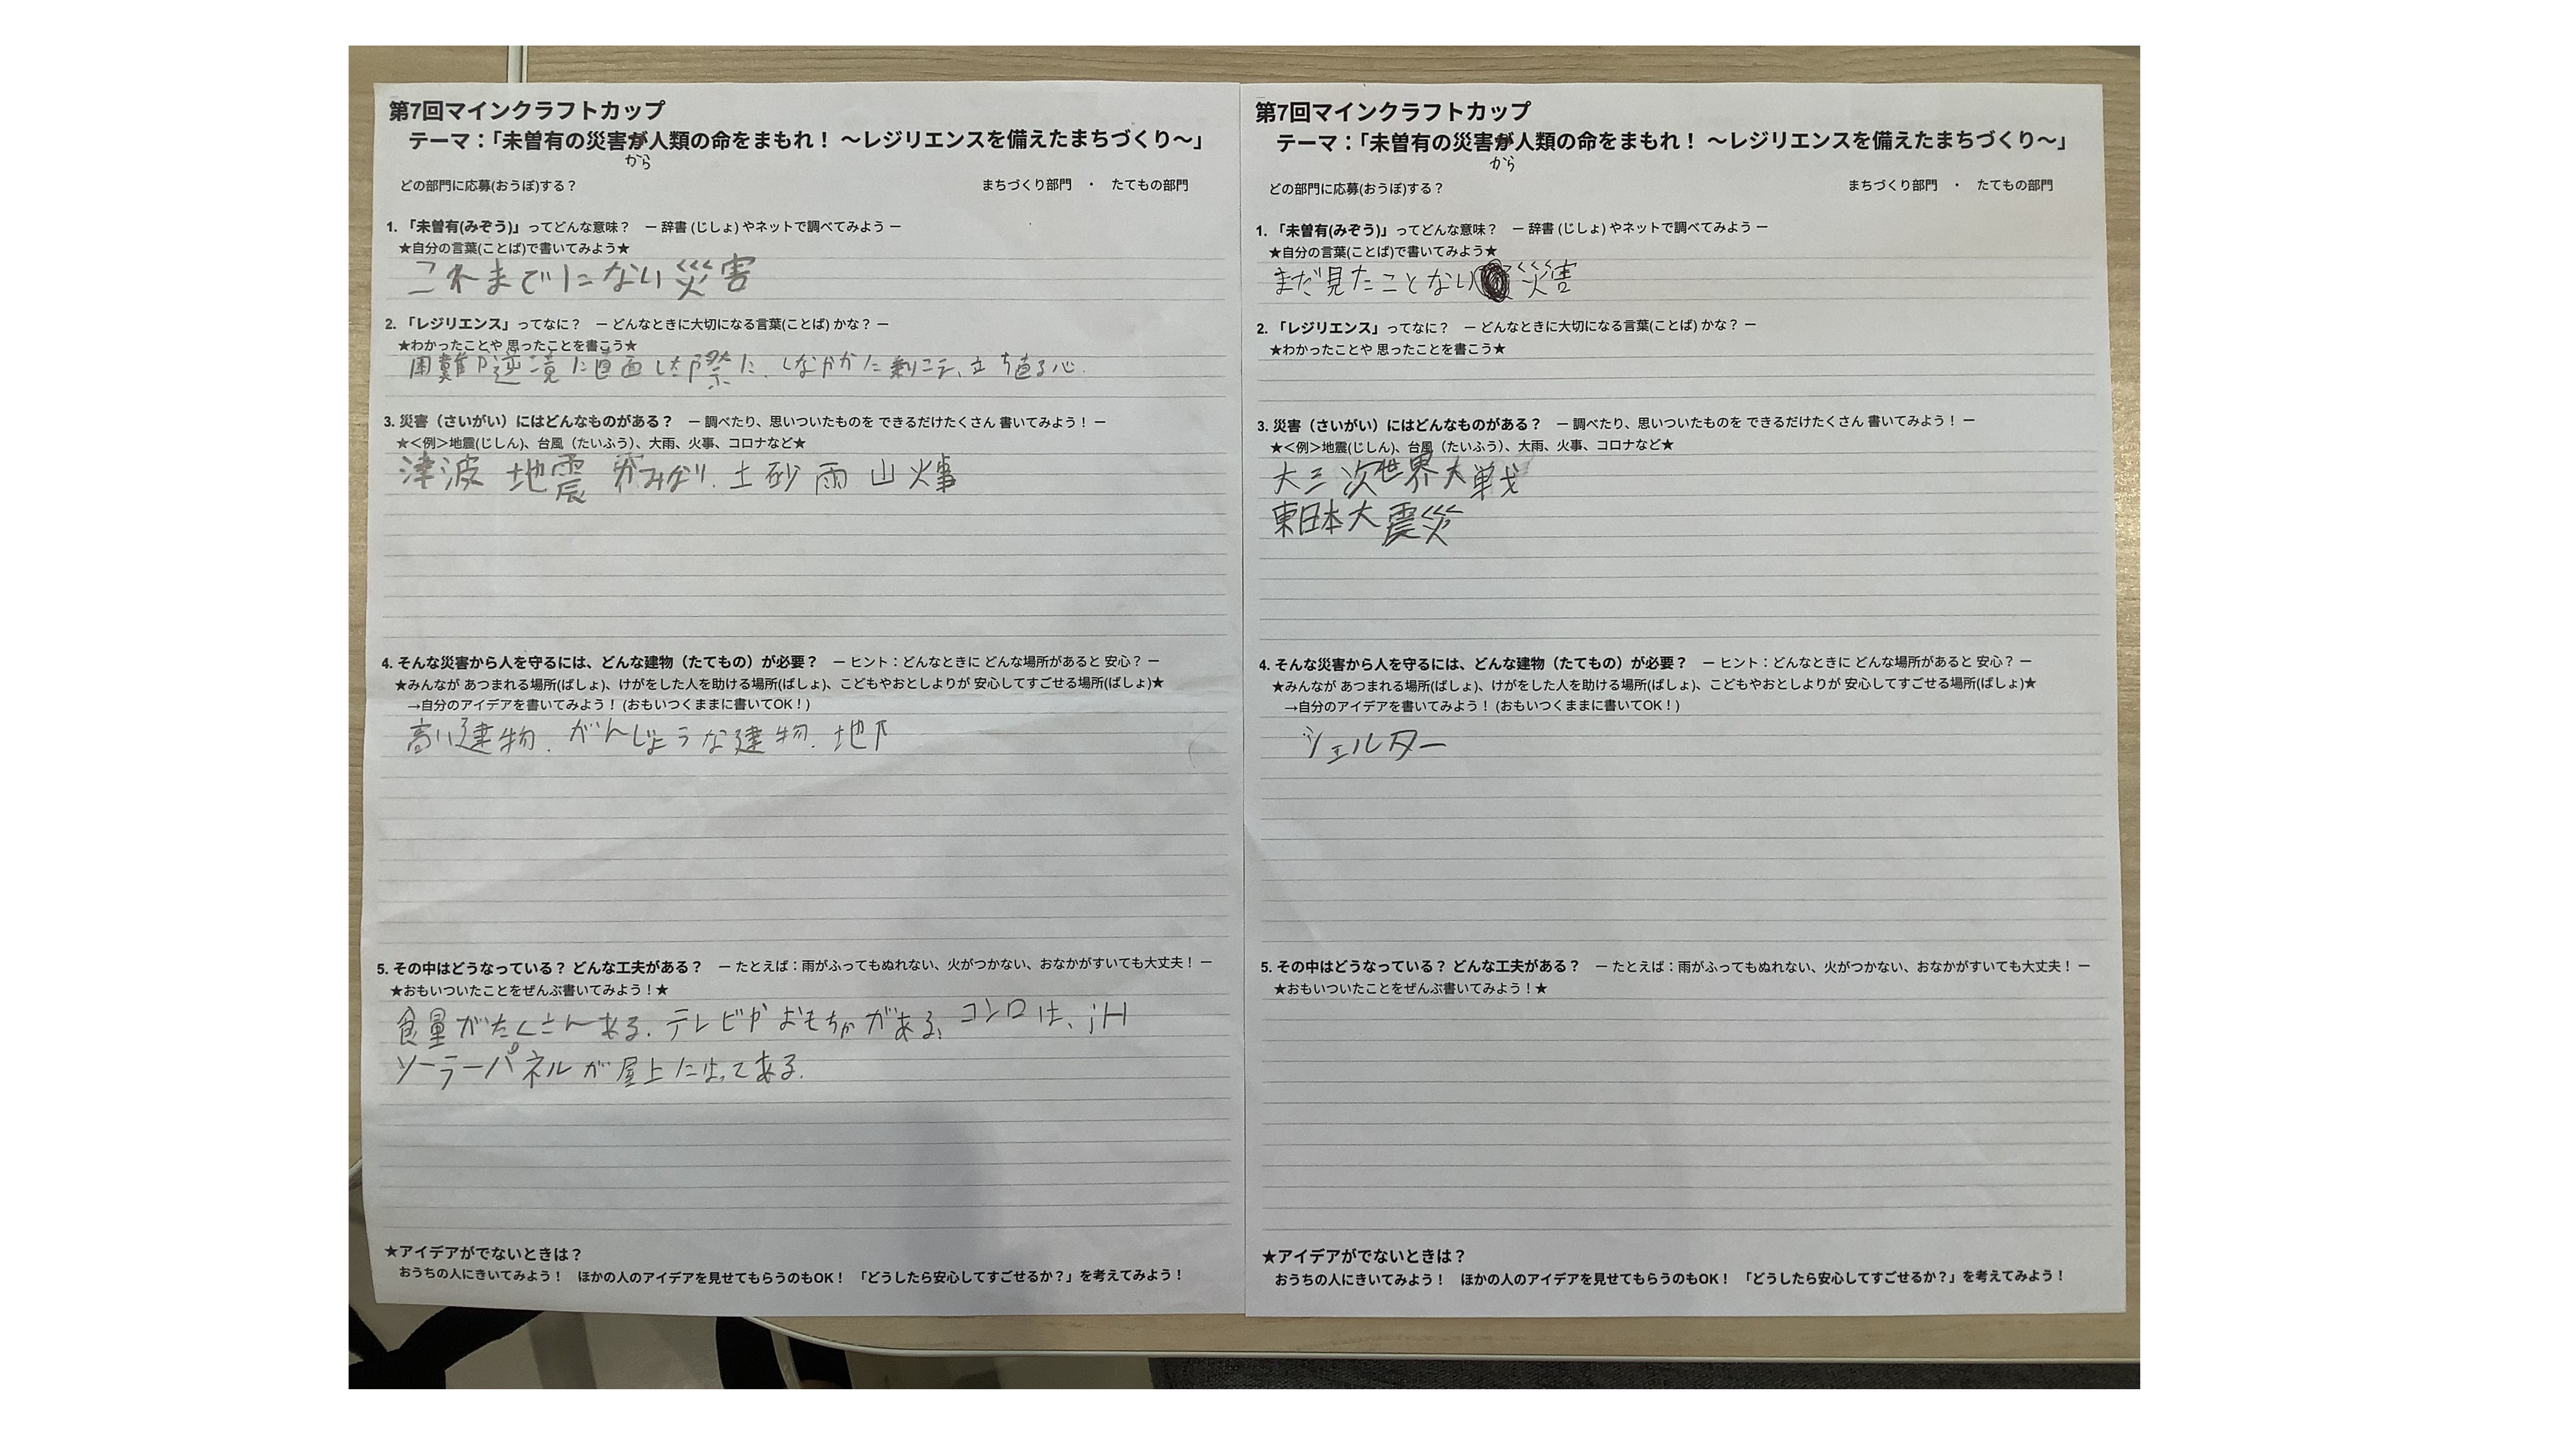 第7回マインクラフトカップ
テーマ：「未曽有の災害が人類の命をまもれ！ ～レジリエンスを備えたまちづくり～」
から
どの部門に応募(おうぼ)する？ まちづくり部門 ・ たてもの部門
1. 「未曽有(みぞう)」ってどんな意味？ ー 辞書 (じしょ) やネットで調べてみよう ー
★自分の言葉(ことば)で書いてみよう★
これまでにない災害
2. 「レジリエンス」ってなに？ ー どんなときに大切になる言葉(ことば) かな？ ー
★わかったことや 思ったことを書こう★
困難や逆境に直面した際に、しなやかに乗りこえ、立ち直る心
3. 災害（さいがい）にはどんなものがある？ ー 調べたり、思いついたものを できるだけたくさん 書いてみよう！ ー
★＜例＞地震(じしん)、台風（たいふう）、大雨、火事、コロナなど★
津波 地震 かみなり. 土砂 雨 山火事
4. そんな災害から人を守るには、どんな建物（たてもの）が必要？ ー ヒント：どんなときに どんな場所があると 安心？ ー
★みんなが あつまれる場所(ばしょ)、けがをした人を助ける場所(ばしょ)、こどもやおとしよりが 安心してすごせる場所(ばしょ)★
→自分のアイデアを書いてみよう！ (おもいつくままに書いてOK！)
高い建物. がんじょうな建物. 地下
5. その中はどうなっている？ どんな工夫がある？ ー たとえば：雨がふってもぬれない、火がつかない、おなかがすいても大丈夫！ ー
★おもいついたことをぜんぶ書いてみよう！★
食量がたくさんある. テレビやおもちゃがある、コンロは、iH
ソーラーパネルが屋上にはってある.
★アイデアがでないときは？
おうちの人にきいてみよう！ ほかの人のアイデアを見せてもらうのもOK！ 「どうしたら安心してすごせるか？」を考えてみよう！
第7回マインクラフトカップ
テーマ：「未曽有の災害が人類の命をまもれ！ ～レジリエンスを備えたまちづくり～」
から
どの部門に応募(おうぼ)する？ まちづくり部門 ・ たてもの部門
1. 「未曽有(みぞう)」ってどんな意味？ ー 辞書 (じしょ) やネットで調べてみよう ー
★自分の言葉(ことば)で書いてみよう★
まだ見たことない災害
2. 「レジリエンス」ってなに？ ー どんなときに大切になる言葉(ことば) かな？ ー
★わかったことや 思ったことを書こう★
3. 災害（さいがい）にはどんなものがある？ ー 調べたり、思いついたものを できるだけたくさん 書いてみよう！ ー
★＜例＞地震(じしん)、台風（たいふう）、大雨、火事、コロナなど★
大三次世界大戦
東日本大震災
4. そんな災害から人を守るには、どんな建物（たてもの）が必要？ ー ヒント：どんなときに どんな場所があると 安心？ ー
★みんなが あつまれる場所(ばしょ)、けがをした人を助ける場所(ばしょ)、こどもやおとしよりが 安心してすごせる場所(ばしょ)★
→自分のアイデアを書いてみよう！ (おもいつくままに書いてOK！)
シェルター
5. その中はどうなっている？ どんな工夫がある？ ー たとえば：雨がふってもぬれない、火がつかない、おなかがすいても大丈夫！ ー
★おもいついたことをぜんぶ書いてみよう！★
★アイデアがでないときは？
おうちの人にきいてみよう！ ほかの人のアイデアを見せてもらうのもOK！ 「どうしたら安心してすごせるか？」を考えてみよう！